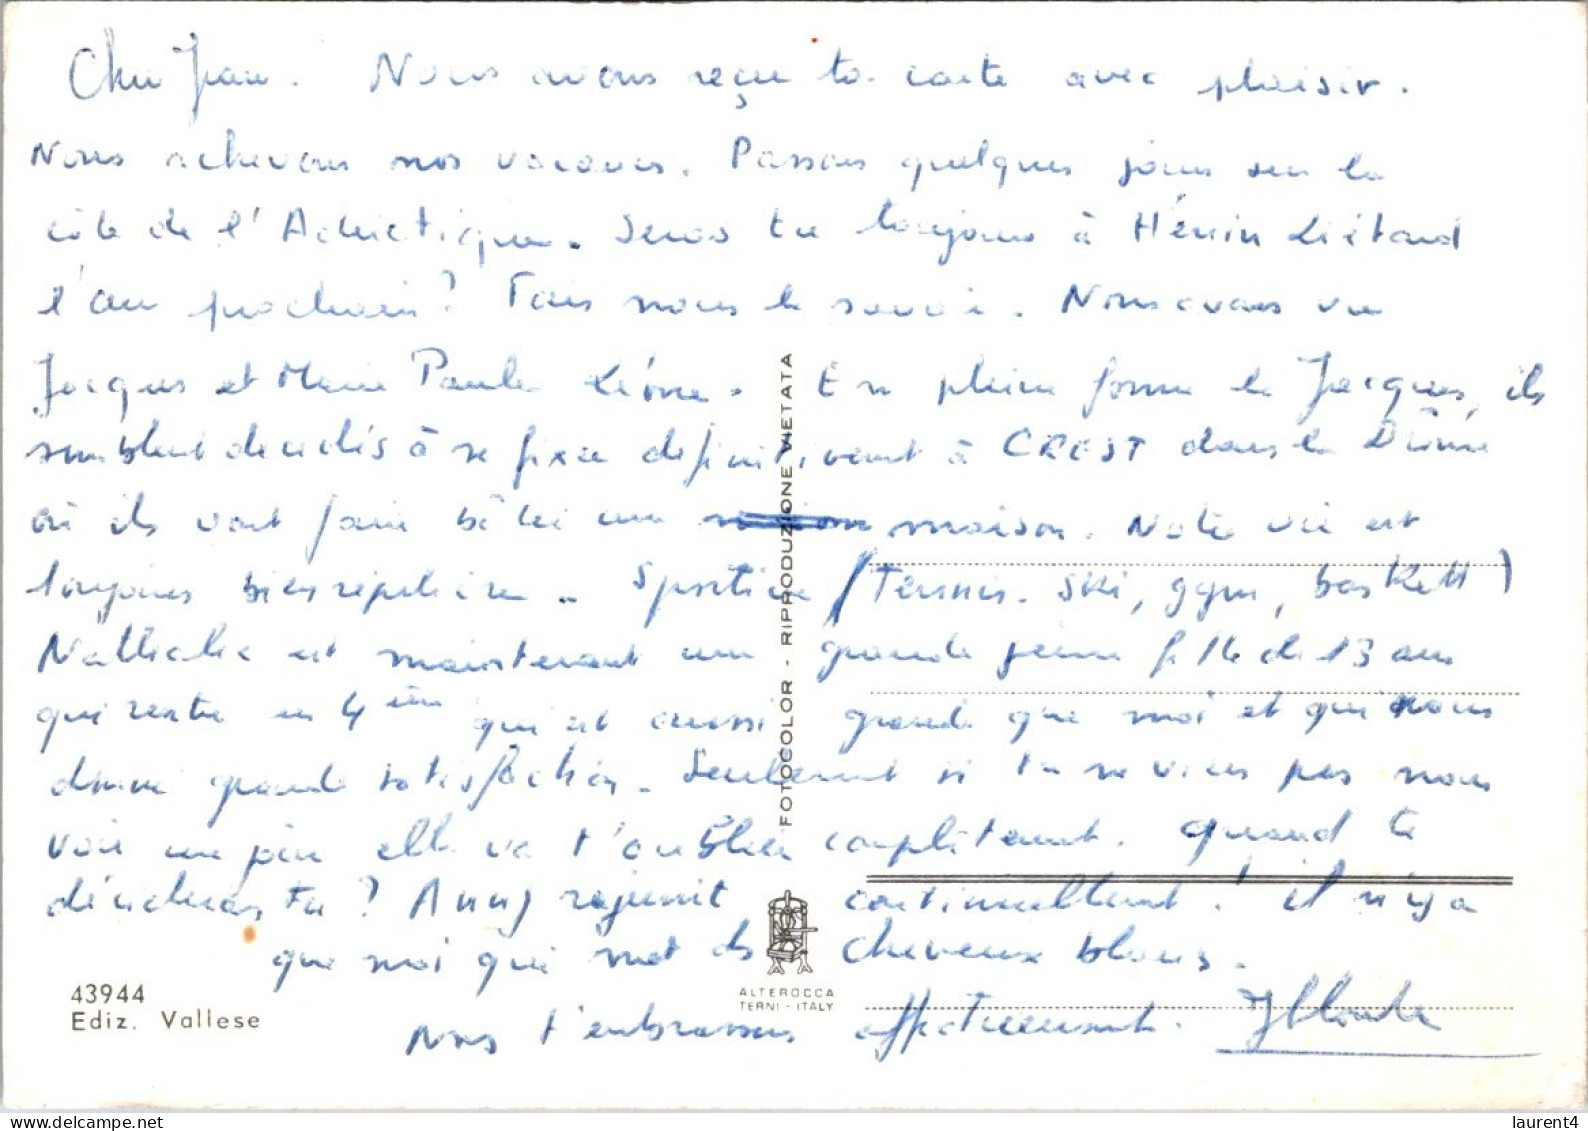 Cher Jean. Nous avons reçu ta carte avec plaisir.
Nous achevons nos vacances. Passons quelques jours sur la
côte de l'Adriatique. Seras tu toujours à Hénin Liétard
l'an prochain? Fais nous le savoir. Nous avons vu
Jacques et Marie Paule Léone. En pleine forme le Jacques, ils
semblent décidés à se fixer définitivement à CREST dans la Drôme
où ils vont faire bâtir une maison. Notre vie est
toujours bien régulière. Sportive (Tennis. Ski, gym, baskett)
Nathalie est maintenant une grande jeune fille de 13 ans
qui rentre en 4ème qui est aussi grande que moi et qui nous
donne grande satisfaction. Seulement si tu ne viens pas nous
voir un peu elle va t'oublier complètement. Quand te
décideras tu? Anny rajeunit continuellement! il n'y a
que moi qui met des cheveux blancs.
Nous t'embrassons affectueusement. JClaude
FOTOCOLOR - RIPRODUZIONE VIETATA
ALTEROCCA
TERNI - ITALY
43944
Ediz. Vallese
laurent4